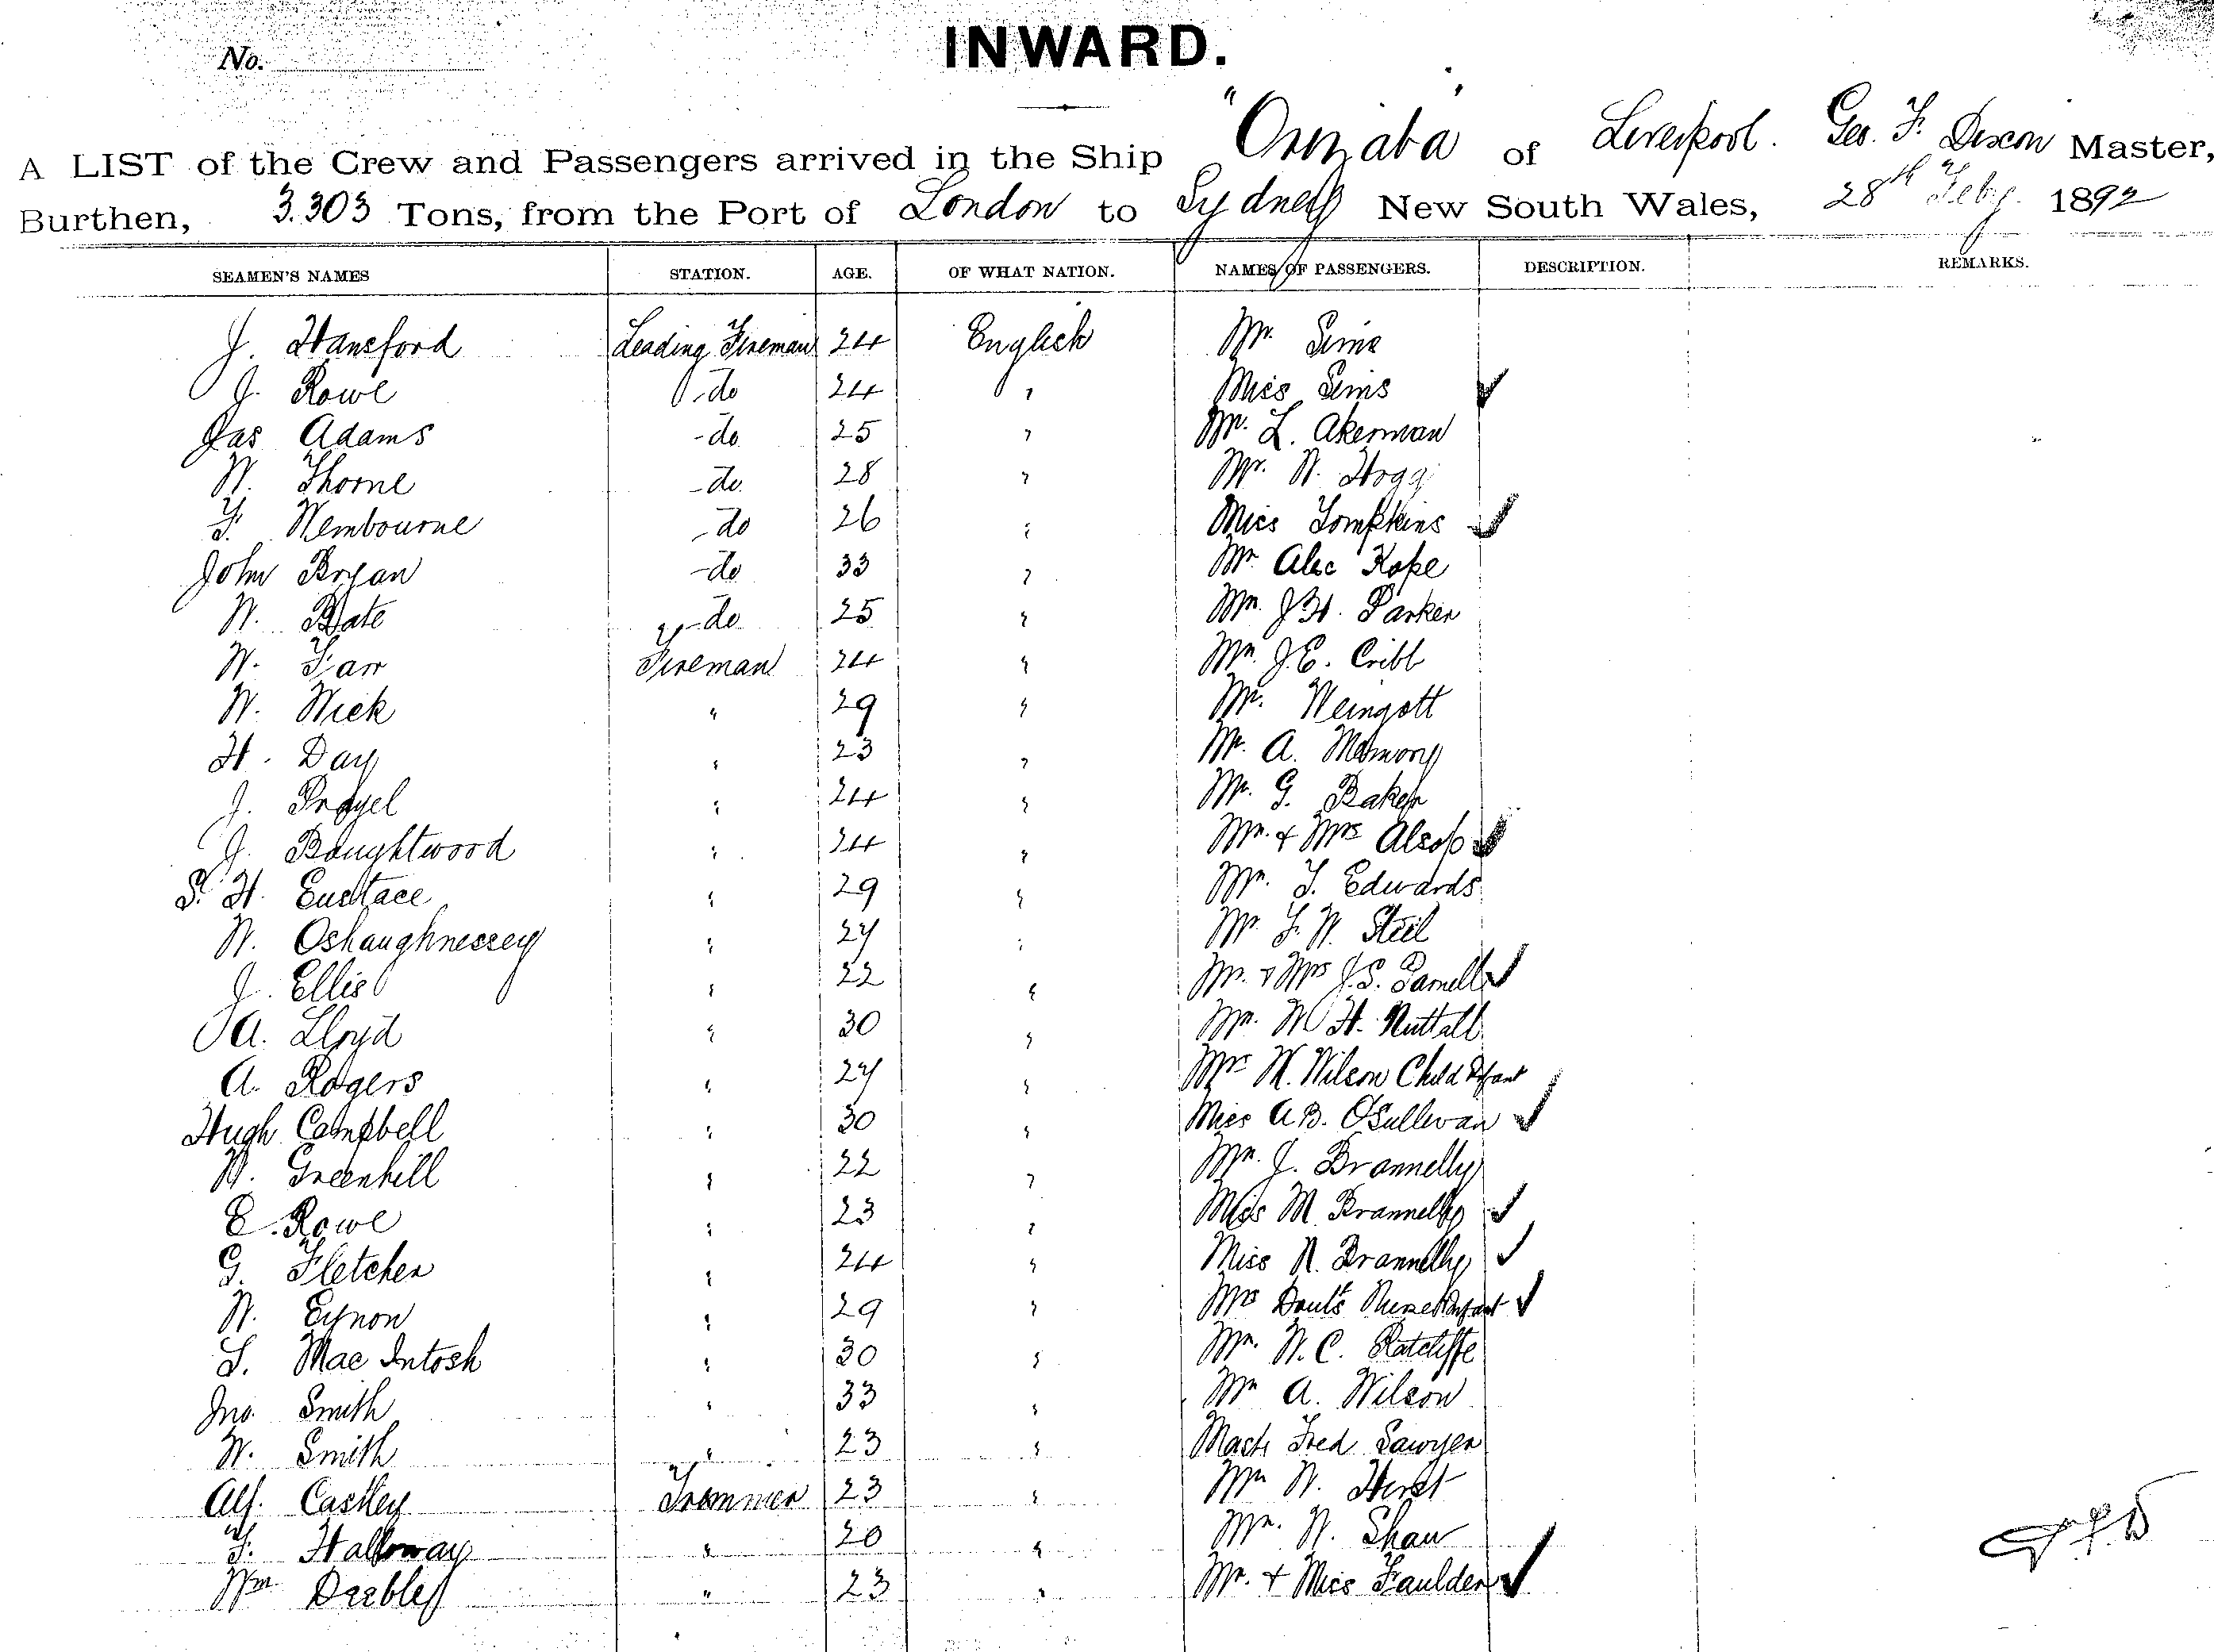 No.
INWARD.
A LIST of the Crew and Passengers arrived in the Ship "Orizaba" of Liverpool. Geo. F. Dixon Master,
Burthen, 3.303 Tons, from the Port of London to Sydney New South Wales, 28th Feby. 1892
SEAMEN'S NAMES STATION. AGE. OF WHAT NATION. NAMES OF PASSENGERS. DESCRIPTION. REMARKS.
J. Hansford Leading Fireman 24 English Mr. Sims
J. Rowe do 24 " Miss Sims ✓
Jas Adams do 25 " Mr. L. Akerman
W. Thorne do. 28 " Mr. W. Hogg
F. Wembourne do 26 " Miss Tompkins ✓
John Bryan do 33 " Mr. Alec Kope
W. Bate do 25 " Mr. J.H. Parker
W. Farr Fireman 24 " Mr. J.E. Cribb
W. Wick " 29 " Mr. Weingott
H. Day " 23 " Mr. A.
J. " 24 " Mr. G. Baker
J. Boughtwood " 24 " Mr. & Mrs Alsop ✓
S. H. Eustace " 29 " Mr. T. Edwards
W. Oshaughnessey " 27 " Mr. F. W. Steil
J. Ellis " 22 " Mr. & Mrs J.S. ✓
A. Lloyd " 30 " Mr. W H. Nuttall
A. Rogers " 27 " Mrs W. Wilson Child Infant
Hugh Campbell " 30 " Miss A.B. O'Sullivan ✓
W. Greenhill " 22 " Mr. J. Brannelly
E. Rowe " 23 " Miss M. Brannelly ✓
G. Fletcher " 24 " Miss N. Brannelly ✓
W. Eynon " 29 " Mrs Nurse & Infant ✓
S. Mac Intosh " 30 " Mr. W. C. Ratcliffe
Jno. Smith " 33 " Mr A. Wilson
W. Smith " 23 " Mastr Fred Sawyer
Alf. Castley Trimmer 23 " Mr W. Hirst
F. Halloway " 20 " Mr. W. Shaw
Wm " 23 " Mr. & Miss Faulder ✓